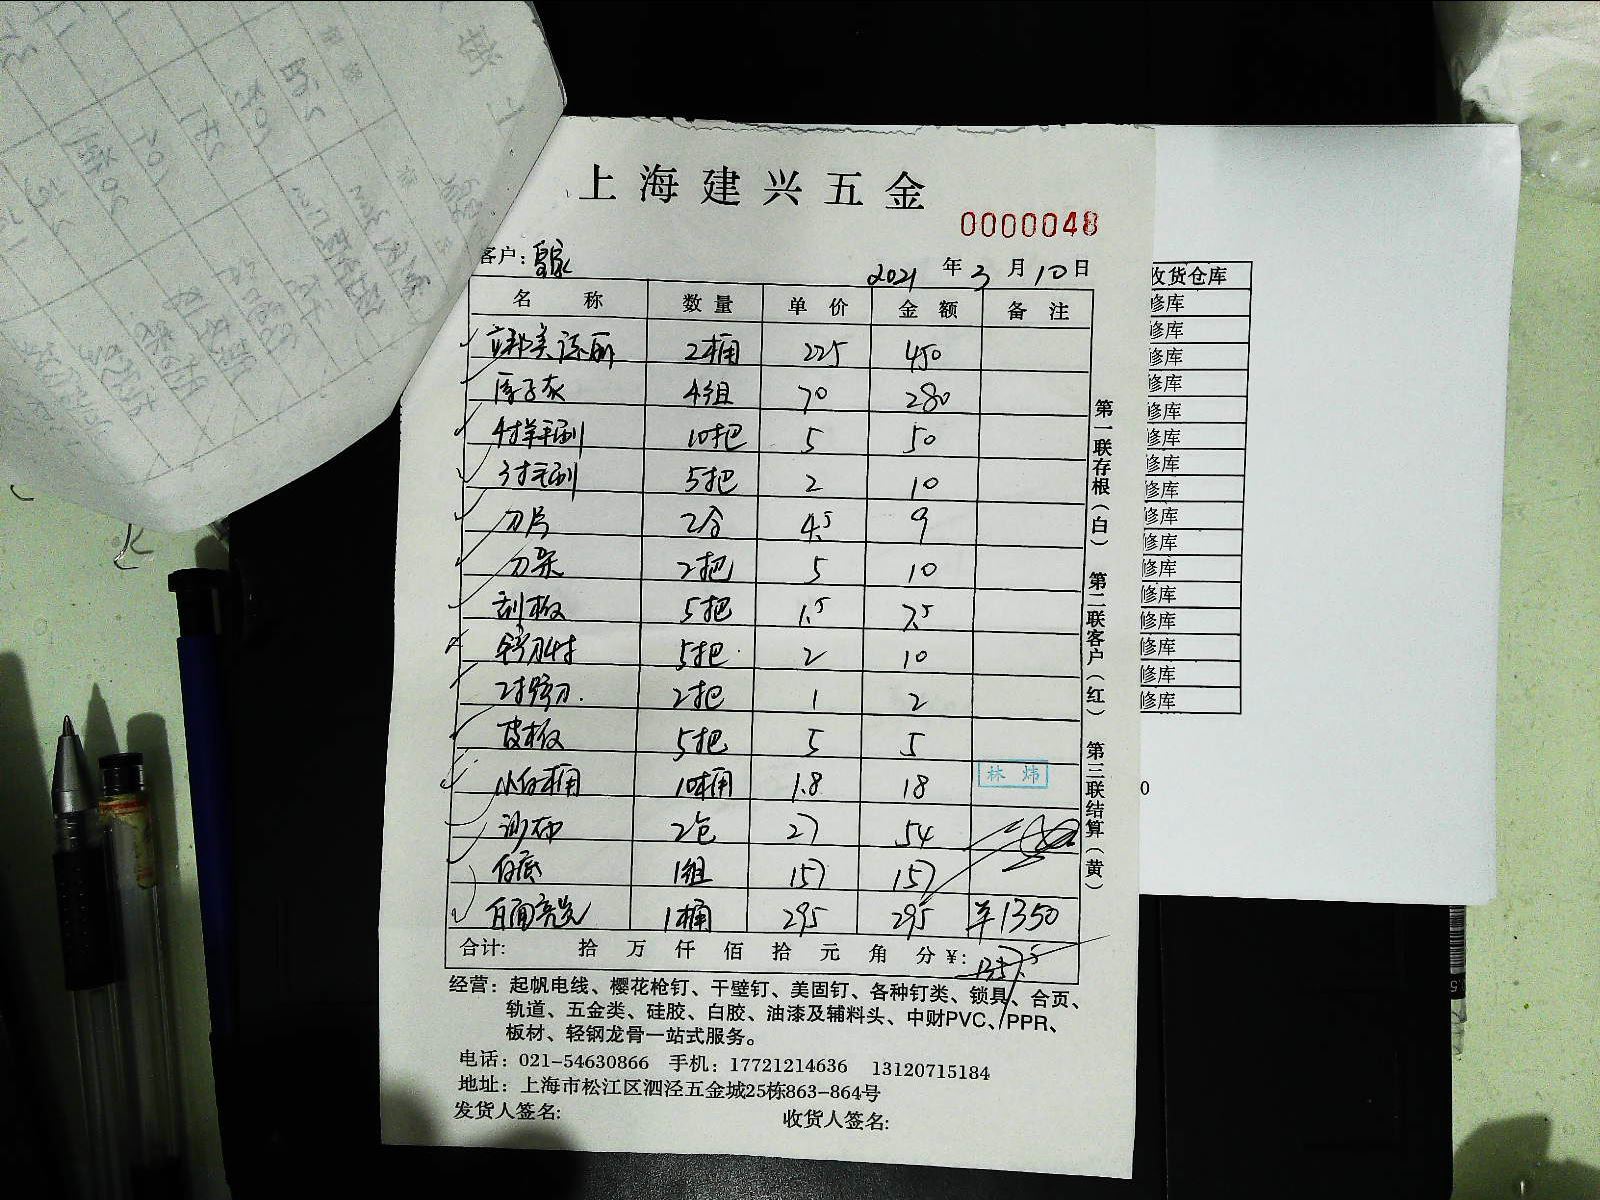 上海建兴五金
0000048
客户：
2021 年 3 月 10 日
名 称 数 量 单 价 金 额 备 注
立邦美涂丽 2桶 225 450
腻子灰 4组 70 280
4寸羊毛刷 10把 5 50
3寸毛刷 5把 2 10
刀片 2合 4.5 9
刀架 2把 5 10
刮板 5把 1.5 7.5
5把 2 10
2把 1 2
皮板 5把 5 5
小白桶 10桶 1.8 18
林炜
沙布 2包 27 54
白底 1组 157 157
白面 1桶 295 295 ¥1350
合计： 拾 万 仟 佰 拾 元 角 分 ¥: 1357.5
经营：起帆电线、樱花枪钉、干壁钉、美固钉、各种钉类、锁具、合页、
轨道、五金类、硅胶、白胶、油漆及辅料头、中财PVC、PPR、
板材、轻钢龙骨一站式服务。
电话：021-54630866 手机：17721214636 13120715184
地址：上海市松江区泗泾五金城25栋863-864号
发货人签名: 收货人签名:
第一联存根（白） 第二联客户（红） 第三联结算（黄）
收货仓库
修库
修库
修库
修库
修库
修库
修库
修库
修库
修库
修库
修库
修库
修库
修库
修库
0